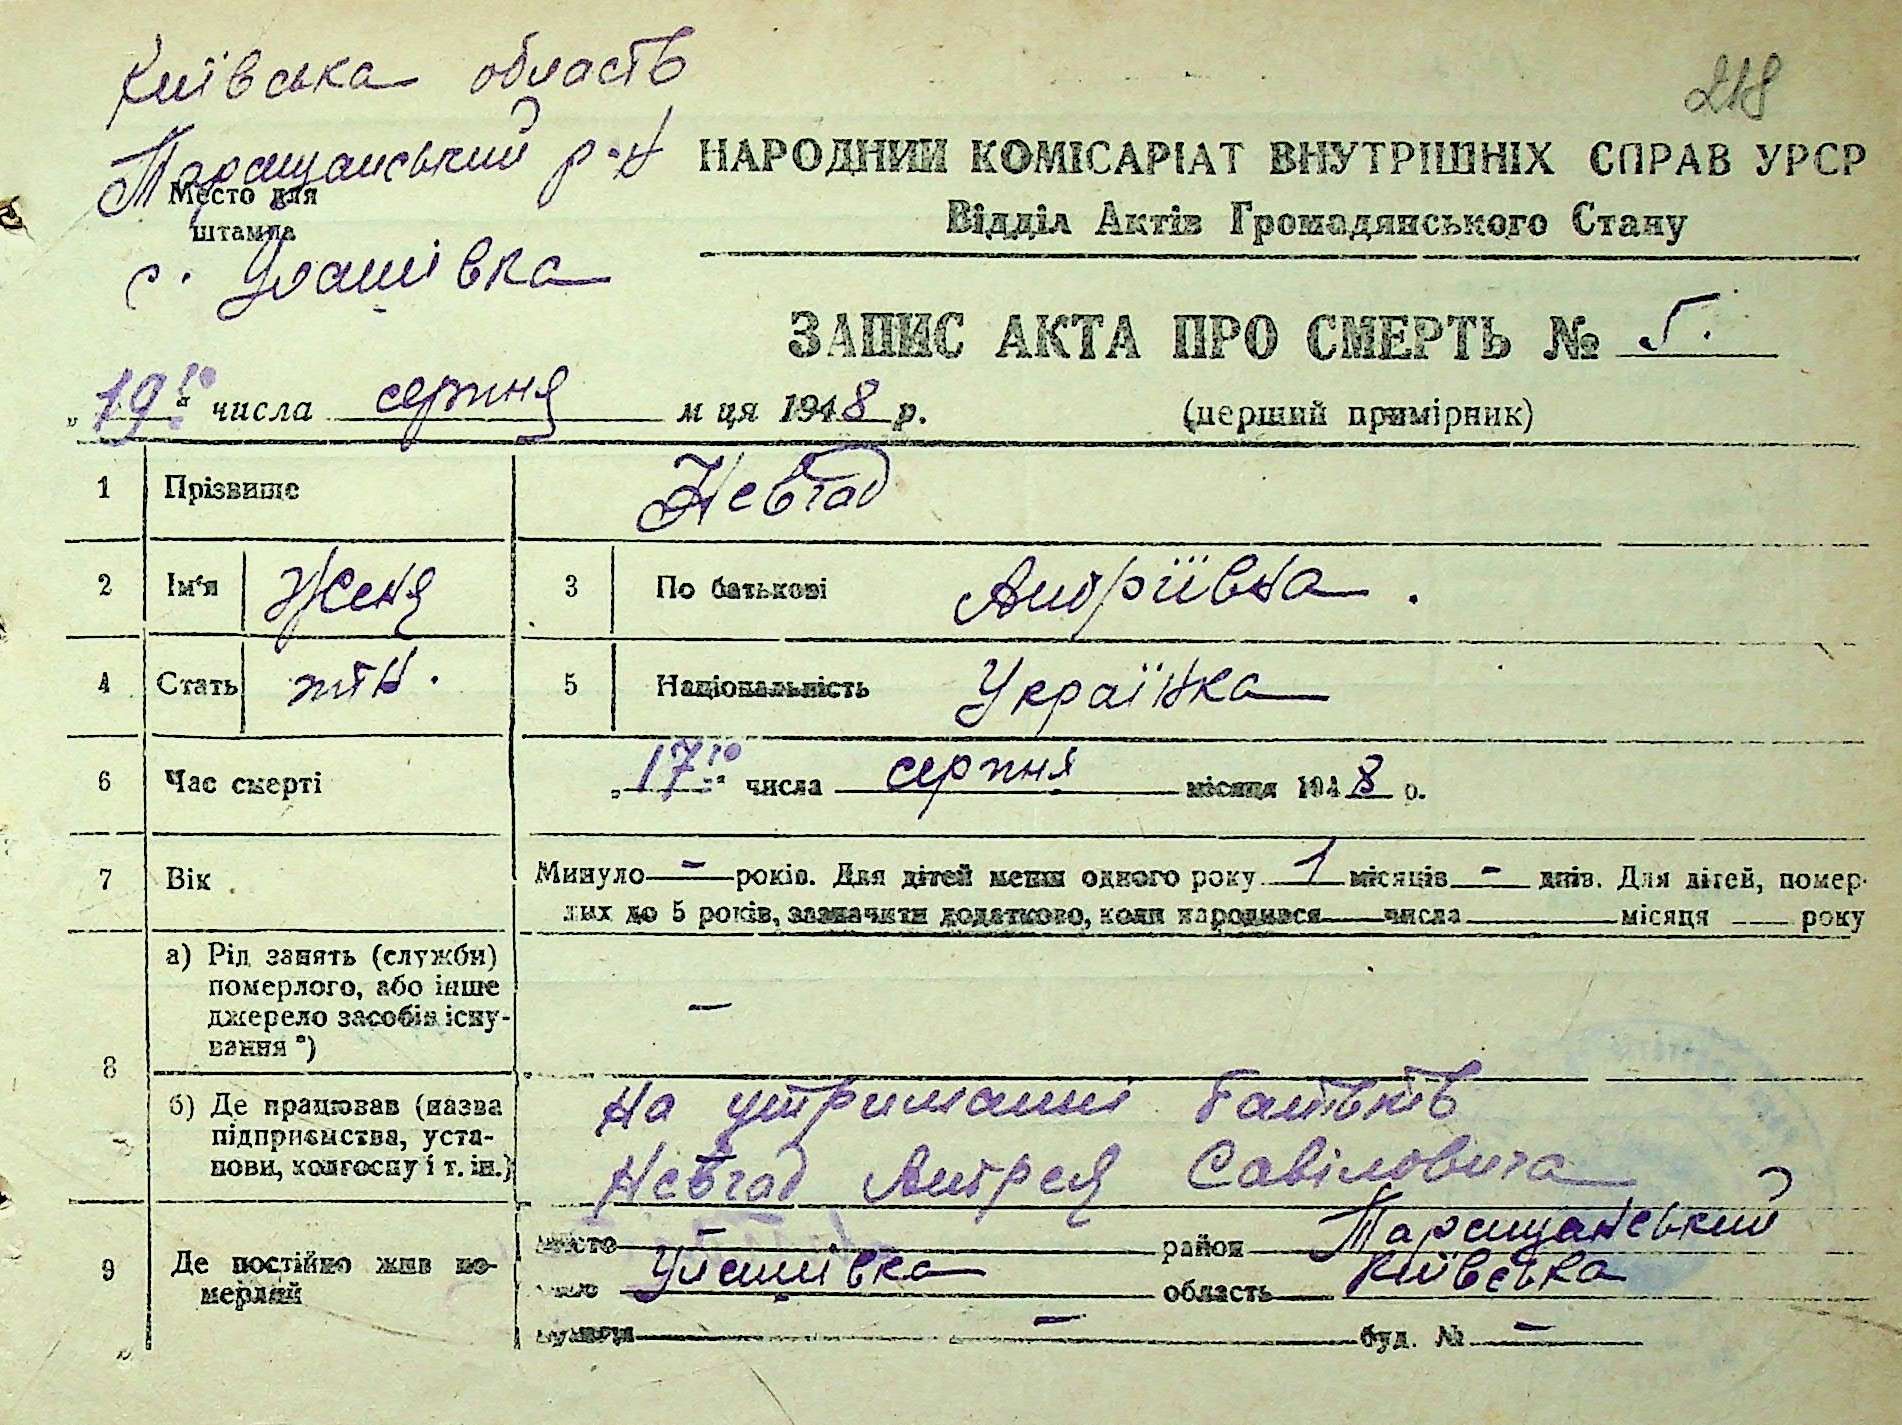 Київська область
218
Таращанський р-н
НАРОДНИЙ КОМІСАРІАТ ВНУТРІШНІХ СПРАВ УРСР
Место для
штампа
Відділ Актів Громадянського Стану
с. Улашівка
ЗАПИС АКТА ПРО СМЕРТЬ № 5.
„19го“ числа серпня м ця 1948 р. (перший примірник)
1 Прізвище Невгад
2 Ім'я Женя 3 По батькові Андріївна.
4 Стать жін. 5 Національність Українка
6 Час смерті „17го“ числа серпня місяця 1948 р.
7 Вік Минуло - років. Для дітей менш одного року 1 місяців - днів. Для дітей, помер-
лих до 5 років, зазначити додатково, коли народився числа місяця року
8 а) Рід занять (служби)
померлого, або інше
джерело засобів існу-
вання *) —
б) Де працював (назва
підприємства, уста-
нови, колгоспу і т. ін.)
На утриманні батьків
Невгад Андрея Савіловича
9 Де постійно жив по-
мерлий
місто — район Таращанський
село Улашівка область Київська
вулиця — буд. № —